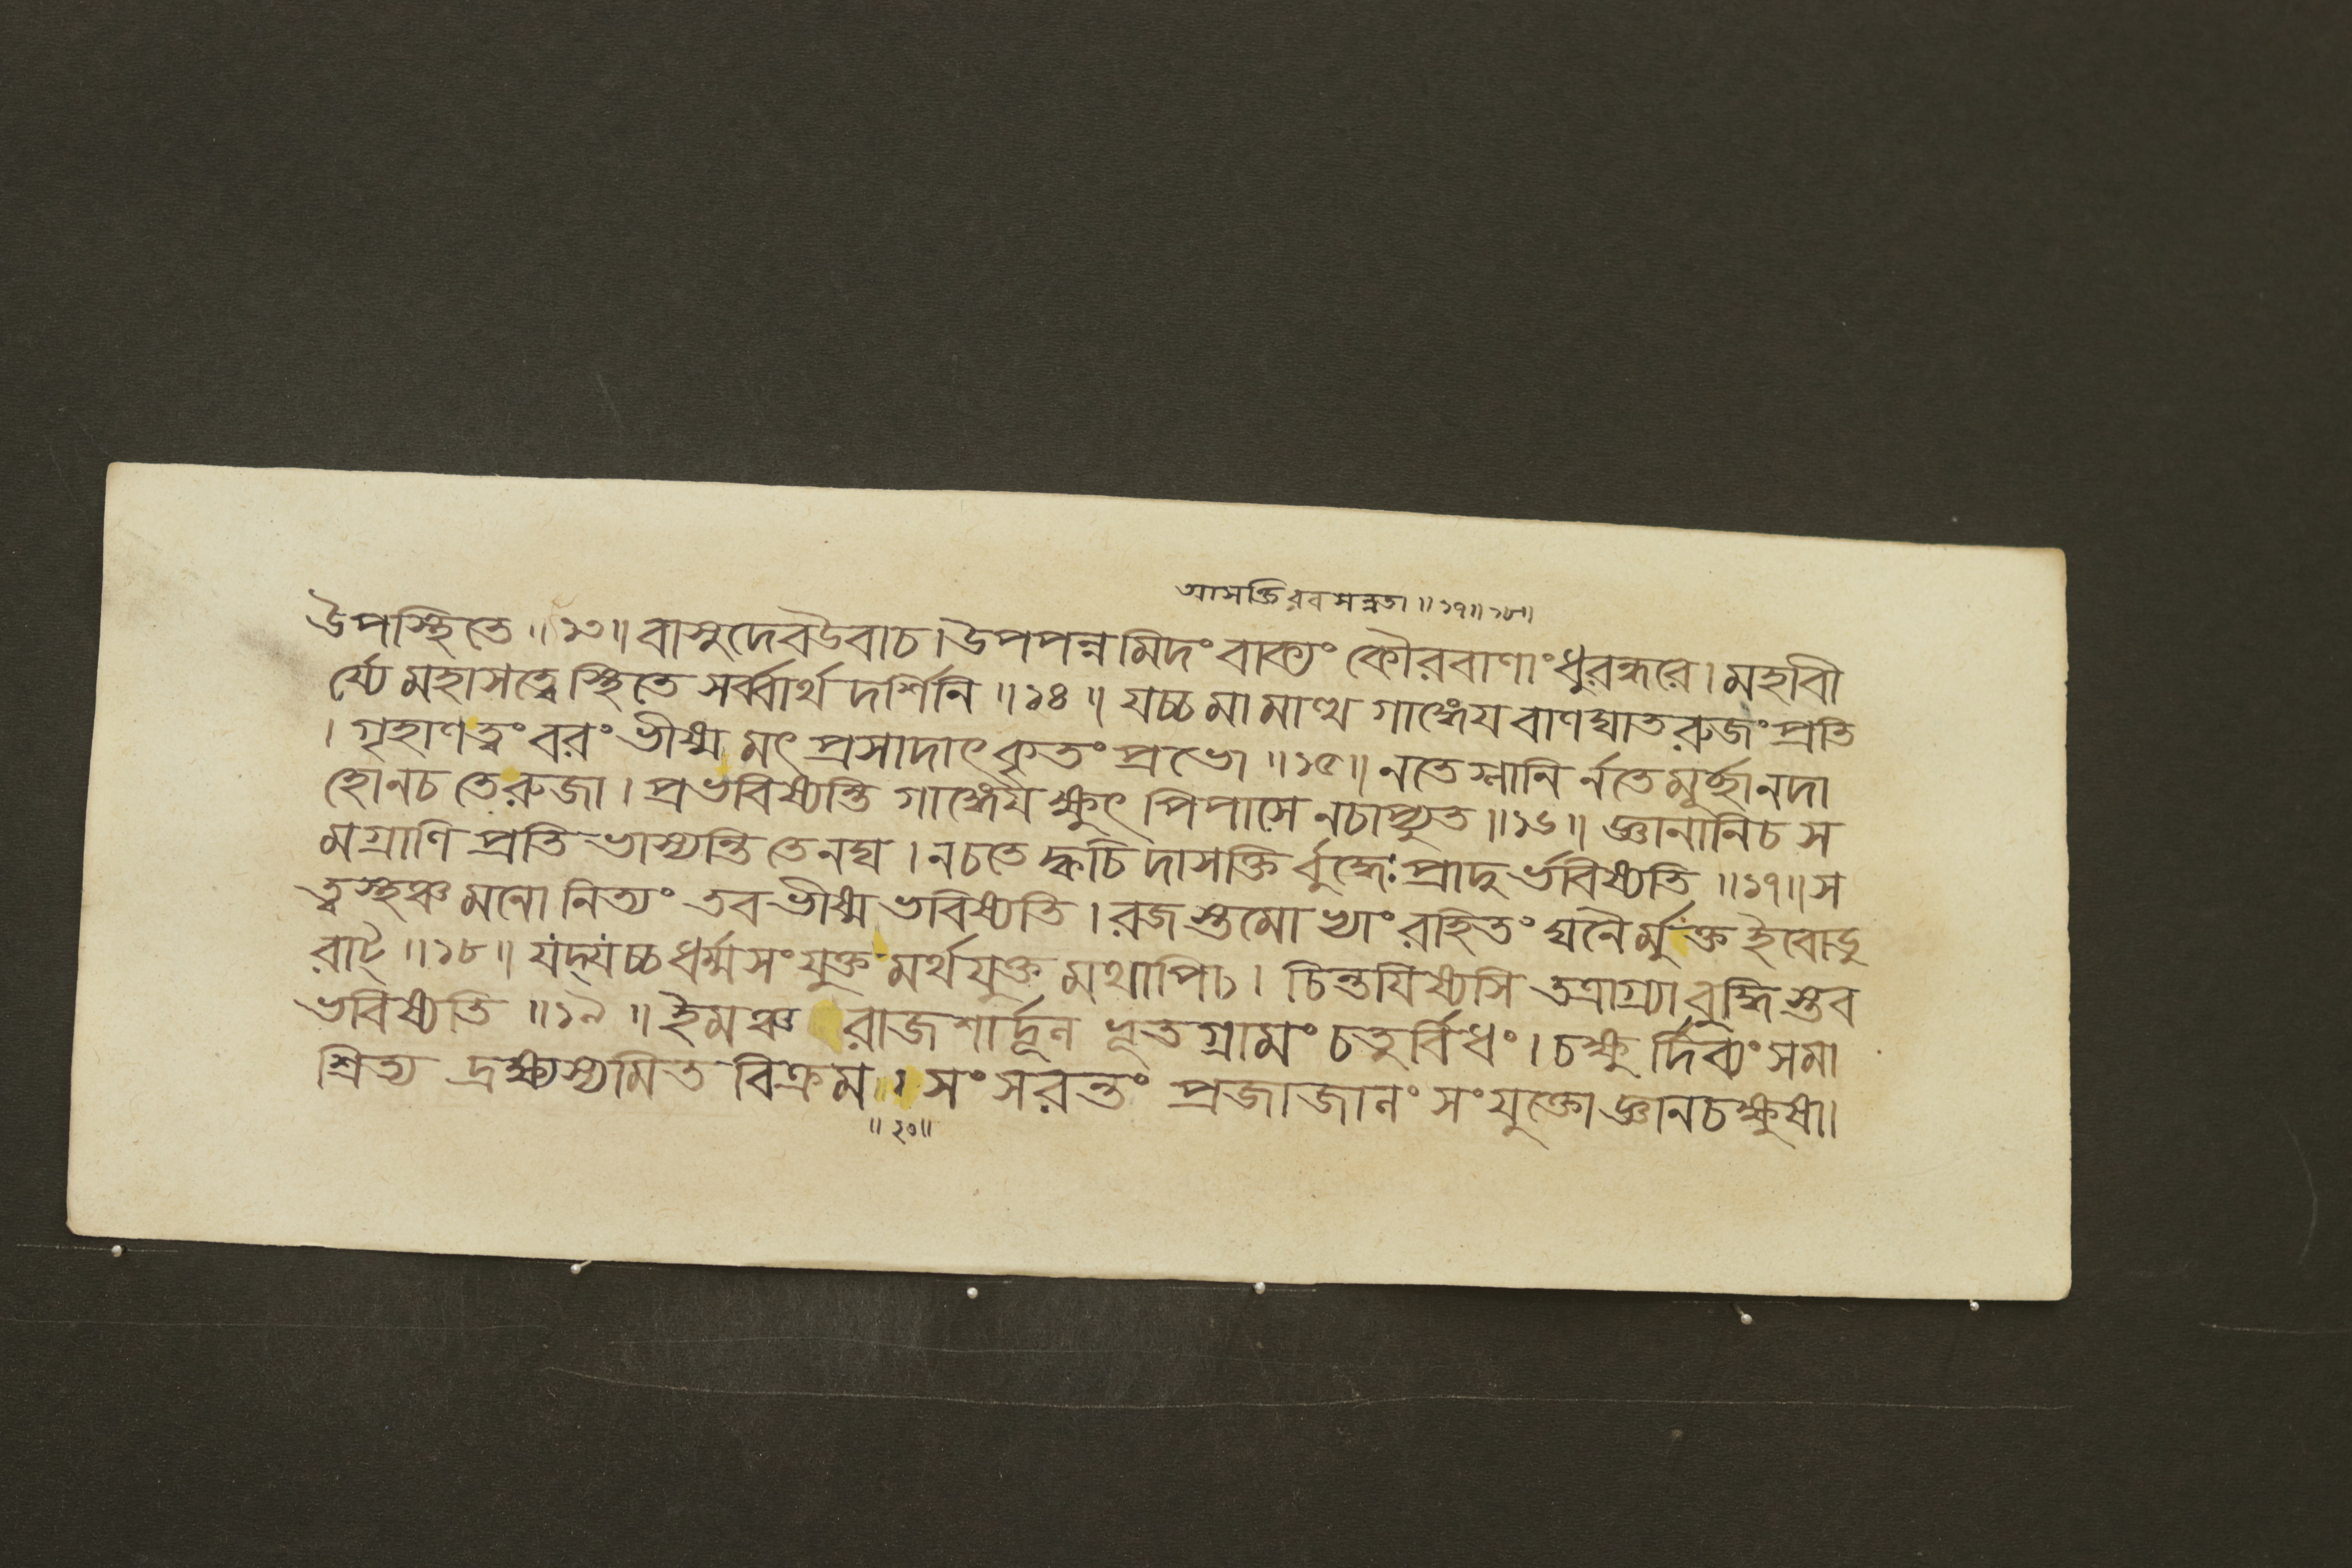 আসক্তিরবসন্নতা ॥ ১৭॥ ১৮॥
উপস্থিতে ॥ ১৩॥ বাসুদেবউবাচ। উপপন্নমিদংবাক্যং কৌরবাণাংধুরন্ধরে। মহাবী
র্য্যে মহাসত্ত্বেস্থিতে সর্ব্বার্থ দর্শিনি ॥ ১৪ ॥ যচ্চমামাত্থ গাঙ্গেয বাণঘাতরুজংপ্রতি
। গৃহাণত্বংবরংভীষ্ম মৎ প্রসাদাৎকৃতং প্রভো ॥ ১৫॥ নতেগ্লানি র্নতেমূর্চ্ছানদা
হোনচ তেরুজা। প্রভবিষ্যন্তি গাঙ্গেয ক্ষুৎ পিপাসে নচাপ্যুত ॥ ১৬॥ জ্ঞানানিচ স
মগ্রাণি প্রতিভাস্যন্তি তেনঘ। নচতে ক্বচিদাসক্তি র্বুদ্ধেঃপ্রাদুর্ভবিষ্যতি ॥ ১৭॥ স
ত্ত্বস্থঞ্চমনো নিত্যং তবভীষ্ম ভবিষ্যতি। রজস্তমোভ্যাং রহিতং ঘনৈর্মুক্ত ইবোডু
রাট্ ॥ ১৮॥ যদ্যচ্চধর্ম্মসংযুক্তমর্থযুক্ত মথাপিচ। চিন্তযিষ্যসি তত্রাগ্র্যা বুদ্ধিস্তব
ভবিষ্যতি ॥ ১৯ ॥ ইমঞ্চ রাজশার্দ্দূল ভূতগ্রামং চতুর্বিধং। চক্ষুর্দিব্যংসমা
শ্রিত্য দ্রক্ষ্যস্যমিত বিক্রম। সংসরন্তং প্রজাজালং সংযুক্তো জ্ঞানচক্ষুষা।
॥ ২০॥